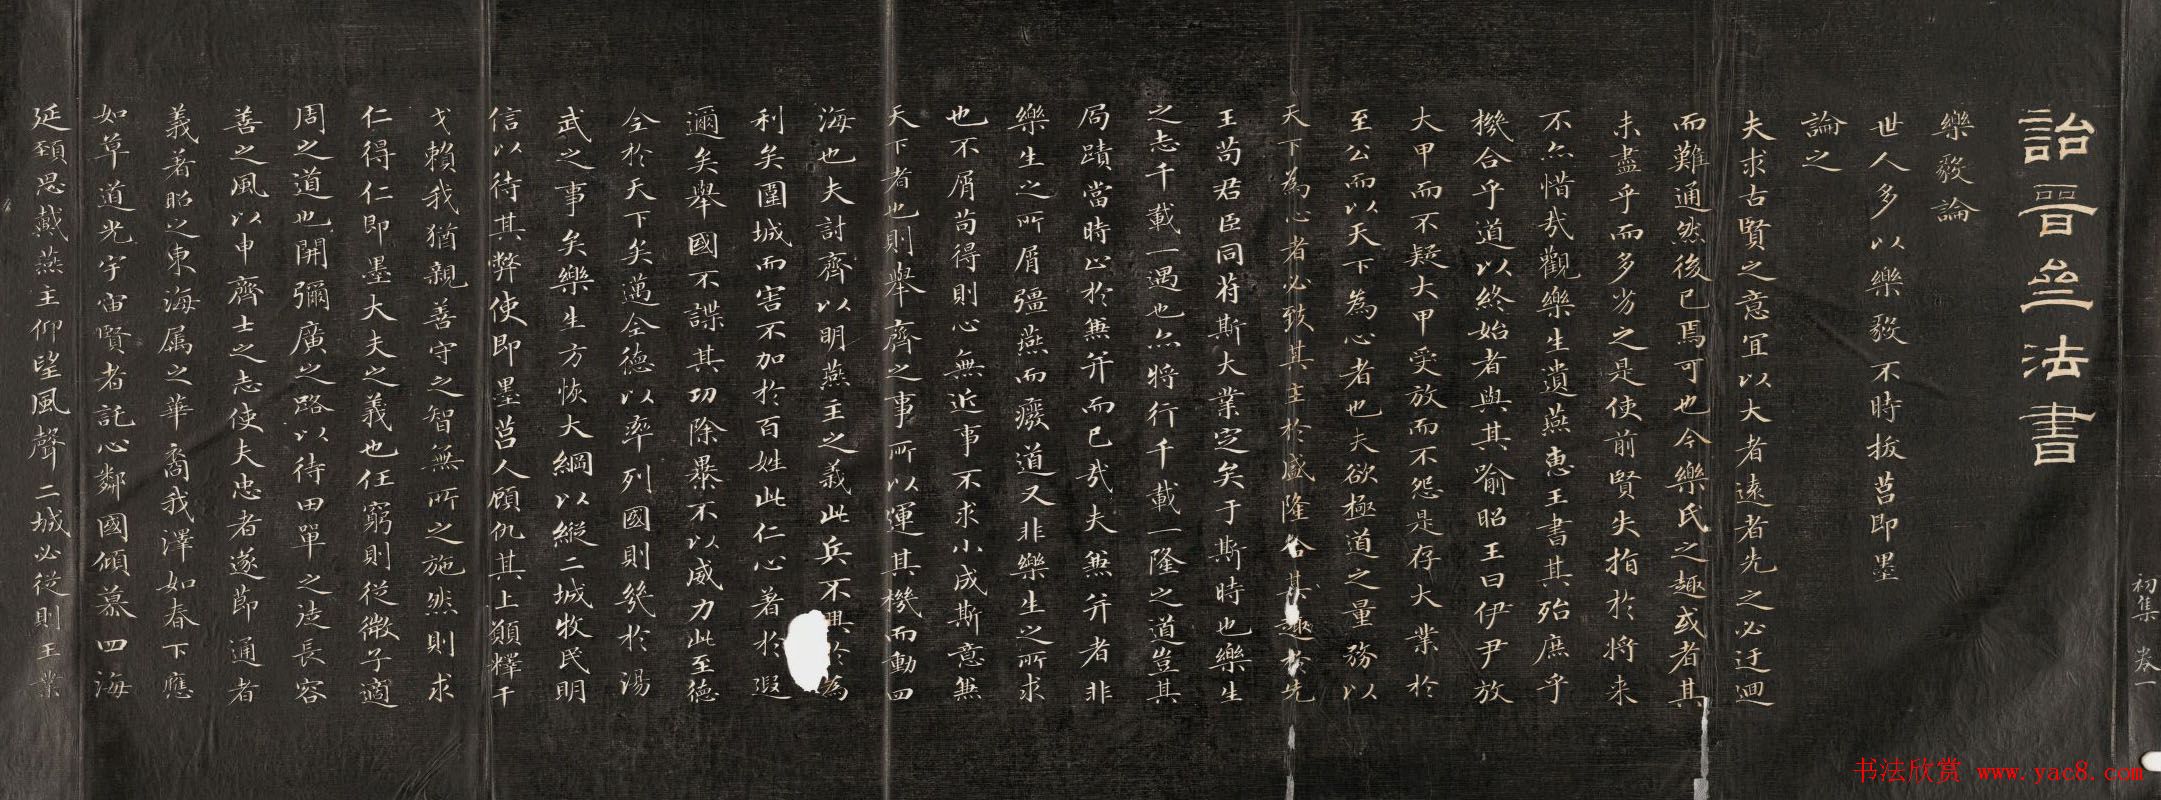 初集 卷一
詒晉齋法書
樂毅論
世人多以樂毅不時拔莒即墨
論之
夫求古賢之意宜以大者遠者先之必迂迴
而難通然後已焉可也今樂氏之趣或者其
未盡乎而多劣之是使前賢失指於將来
不亦惜哉觀樂生遺燕惠王書其殆庶乎
機合乎道以終始者與其喻昭王曰伊尹放
大甲而不疑大甲受放而不怨是存大業於
至公而以天下為心者也夫欲極道之量務以
天下為心者必致其主於盛隆合其趣於先
王苟君臣同符斯大業定矣于斯時也樂生
之志千載一遇也亦將行千載一隆之道豈其
局蹟當時止於兼并而已哉夫兼并者非
樂生之所屑彊燕而癈道又非樂生之所求
也不屑苟得則心無近事不求小成斯意無
天下者也則舉齊之事所以運其機而動四
海也夫討齊以明燕主之義此兵不興於為
利矣圍城而害不加於百姓此仁心著於遐
邇矣舉國不謀其功除暴不以威力此至德
全於天下矣邁全德以率列國則幾於湯
武之事矣樂生方恢大綱以縱二城牧民明
信以待其弊使即墨莒人顧仇其上願釋干
戈賴我猶親善守之智無所之施然則求
仁得仁即墨大夫之義也任窮則從微子適
周之道也開彌廣之路以待田單之徒長容
善之風以申齊士之志使夫忠者遂節通者
義著昭之東海属之華裔我澤如春下應
如草道光宇宙賢者託心鄰國傾慕四海
延頚思戴燕主仰望風聲二城必從則王業
书法欣赏 www.yac8.com